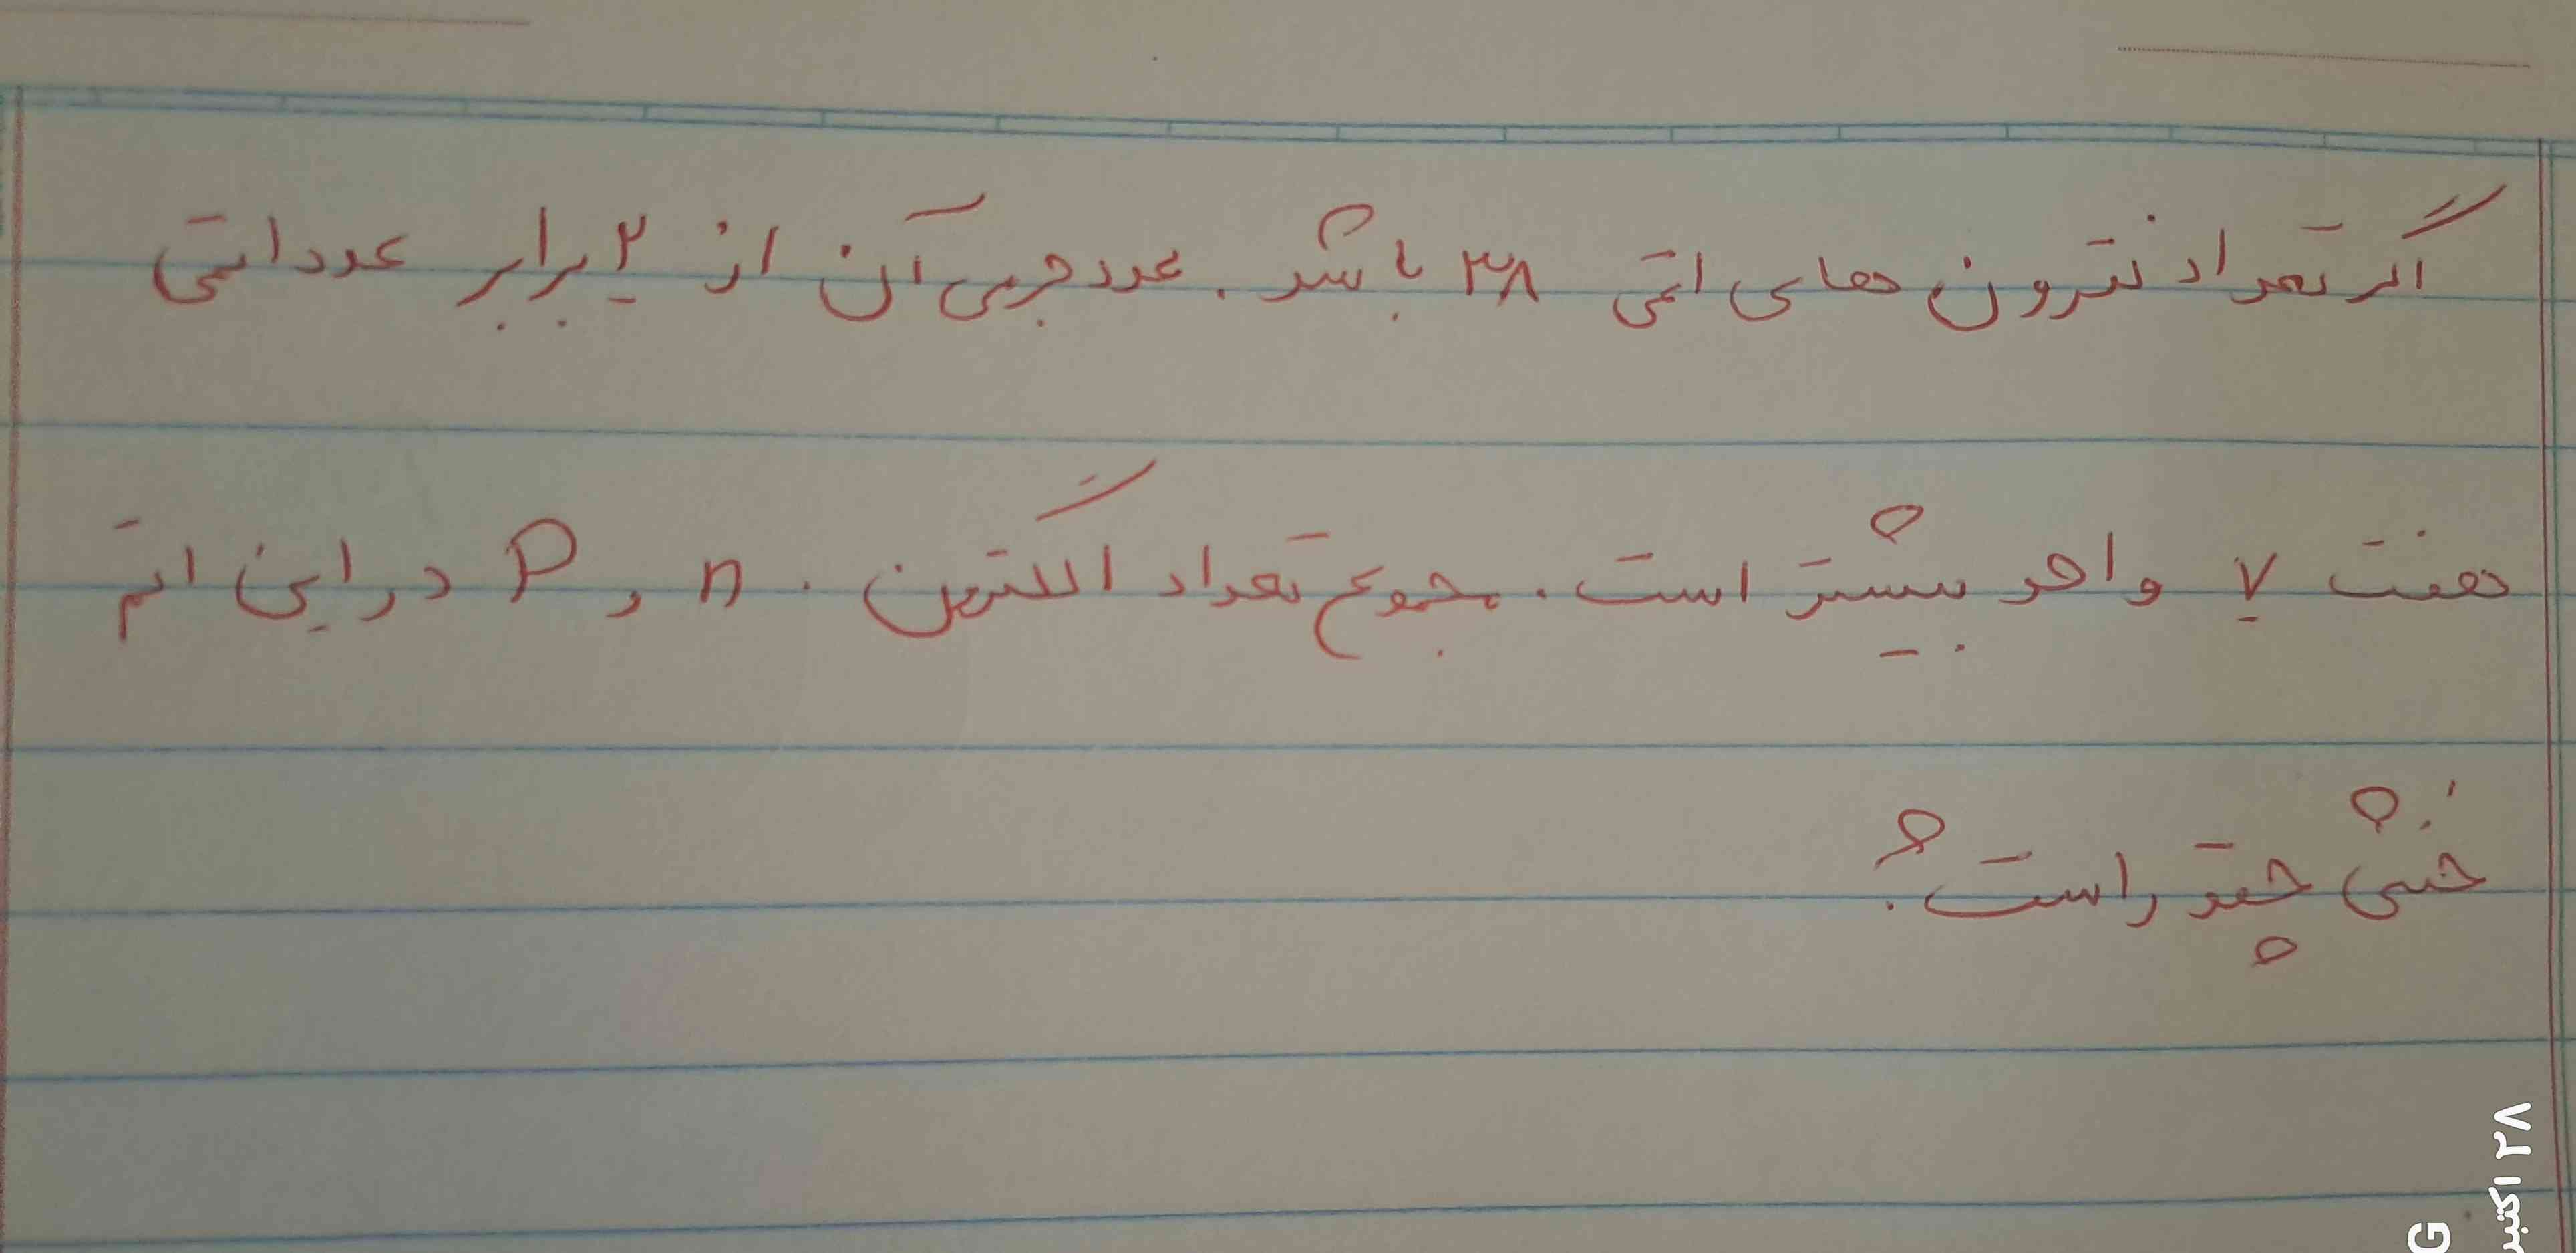 اگر تعداد نترون های اتمی ۳۸ باشد. عدد جرمی آن از ۲ برابر عدد اتمی
هفت ۷ واحد بیشتر است. مجموع تعداد الکترون. n و P در این اتم
خنثی چقدر است؟
۲۸ اکتبر
G